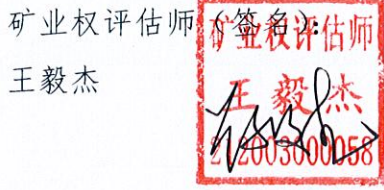 矿业权评估师（签名）：
王毅杰
矿业权评估师
王毅杰